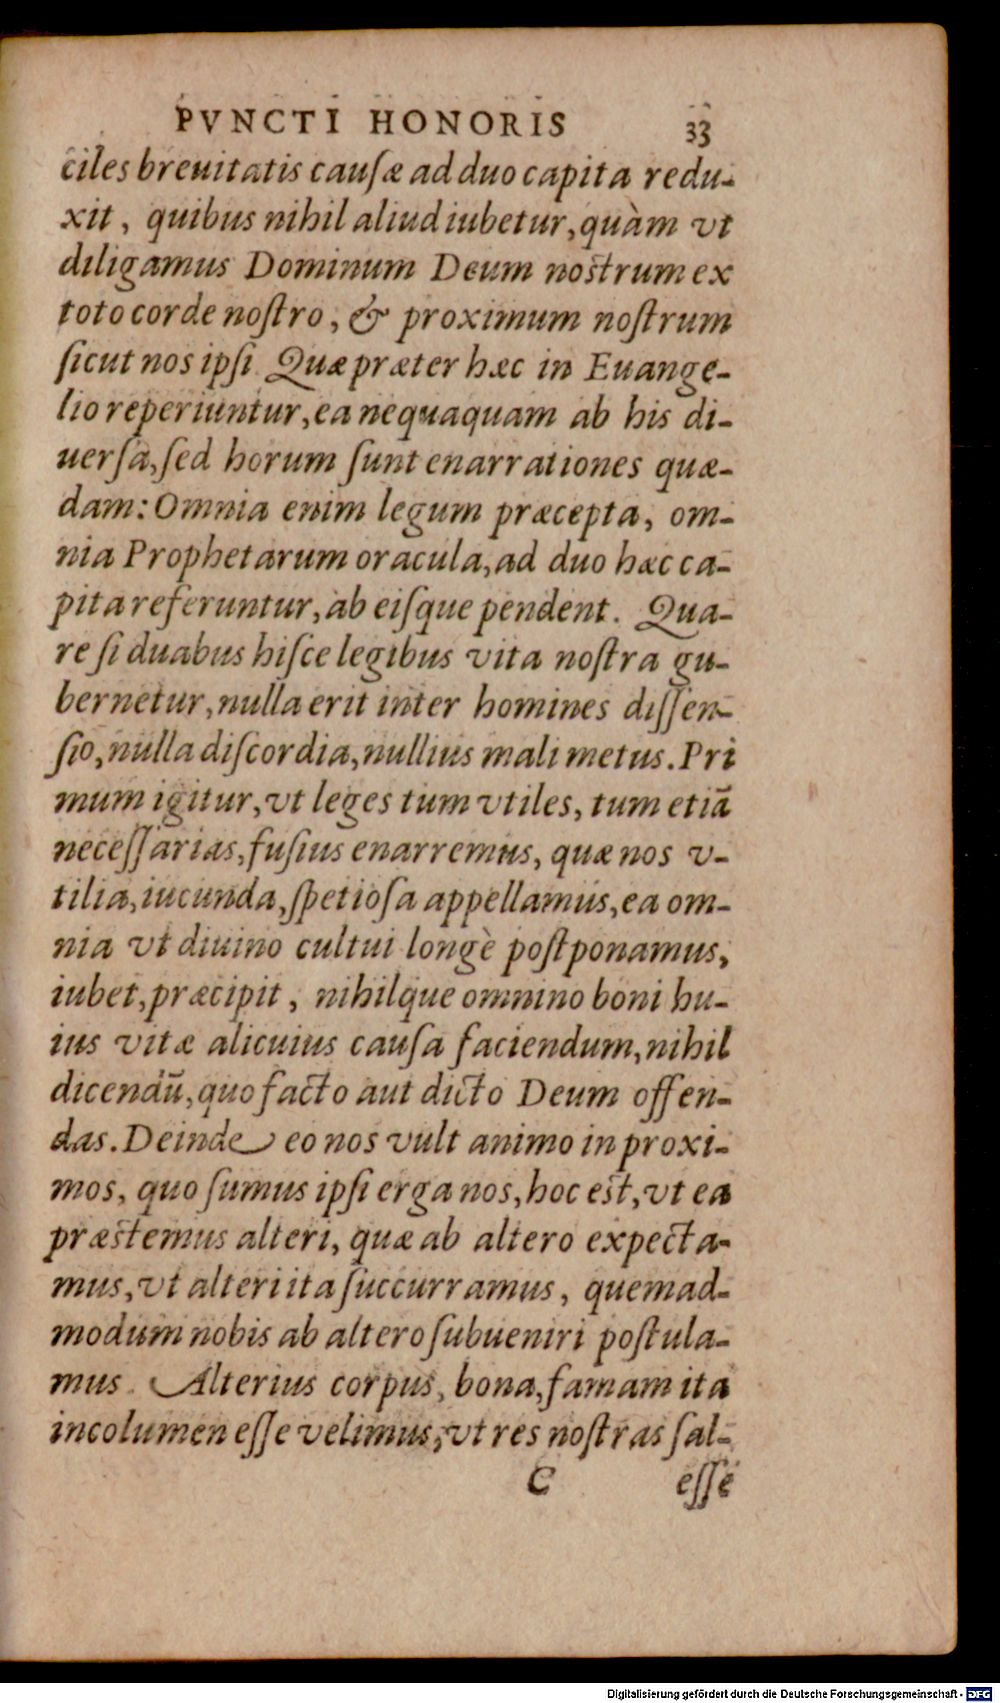 PVNCTI HONORIS 33
ciles breuitatis cauſæ ad duo capita redu-
xit, quibus nihil aliud iubetur, quàm vt
diligamus Dominum Deum nostrum ex
toto corde noſtro, & proximum noſtrum
ſicut nos ipſi. Quæ præter hæc in Euange-
lio reperiuntur, ea nequaquam ab his di-
uerſa, ſed horum ſunt enarrationes quæ-
dam: Omnia enim legum præcepta, om-
nia Prophetarum oracula, ad duo hæc ca-
pita referuntur, ab eiſque pendent. Qua-
re ſi duabus hiſce legibus vita noſtra gu-
bernetur, nulla erit inter homines diſſen-
ſio, nulla diſcordia, nullius mali metus. Pri
mum igitur, vt leges tum vtiles, tum etiã
neceſſarias, fuſius enarremus, quæ nos v-
tilia, iucunda, ſpetioſa appellamus, ea om-
nia vt diuino cultui longè poſtponamus,
iubet, præcipit, nihilque omnino boni hu-
ius vitæ alicuius cauſa faciendum, nihil
dicendũ, quo facto aut dicto Deum offen-
das. Deinde eo nos vult animo in proxi-
mos, quo ſumus ipſi erga nos, hoc est, vt ea
præstemus alteri, quæ ab altero expecta-
mus, vt alteri ita ſuccurramus, quemad-
modum nobis ab altero ſubueniri poſtula-
mus. Alterius corpus, bona, famam ita
incolumen eſſe velimus, vt res noſtras ſal-
C eſſe
Digitalisierung gefördert durch die Deutsche Forschungsgemeinschaft - DFG